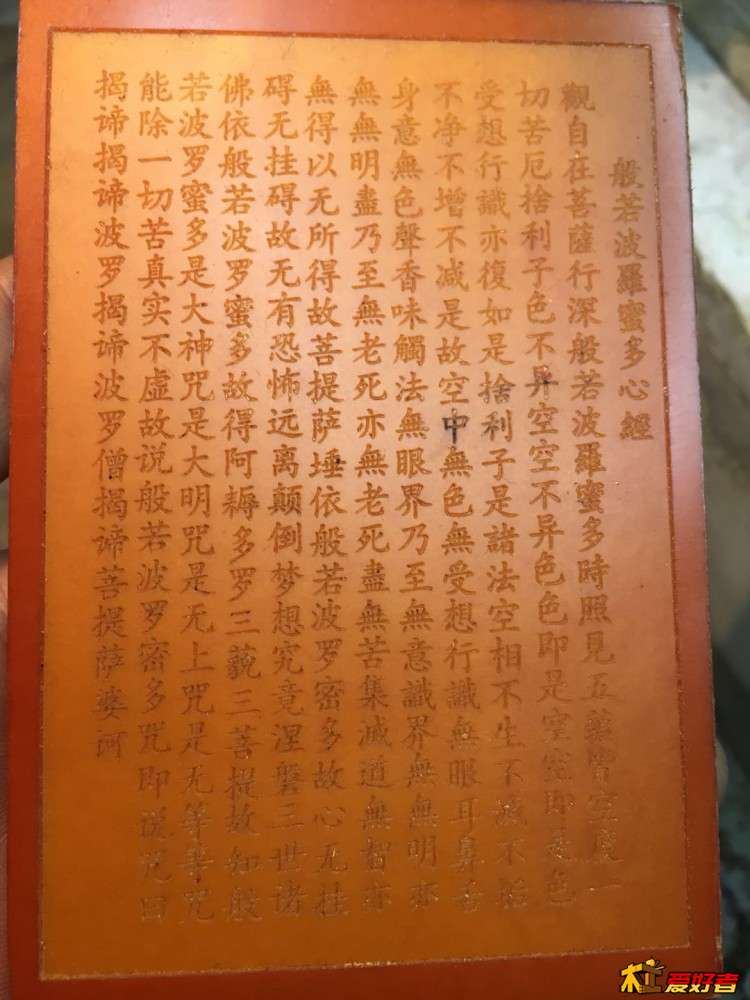 般若波羅蜜多心經
觀自在菩薩行深般若波羅蜜多時照見五藴皆空度一
切苦厄捨利子色不异空空不异色色即是空空即是色
受想行識亦復如是捨利子是諸法空相不生不滅不垢
不净不增不减是故空中無色無受想行識無眼耳鼻舌
身意無色聲香味觸法無眼界乃至無意識界無無明亦
無無明盡乃至無老死亦無老死盡無苦集滅道無智亦
無得以无所得故菩提萨埵依般若波罗密多故心无挂
碍无挂碍故无有恐怖远离颠倒梦想究竟涅磐三世诸
佛依般若波罗蜜多故得阿耨多罗三藐三菩提故知般
若波罗蜜多是大神咒是大明咒是无上咒是无等等咒
能除一切苦真实不虚故说般若波罗密多咒即说咒曰
揭谛揭谛波罗揭谛波罗僧揭谛菩提萨婆诃
爱好者